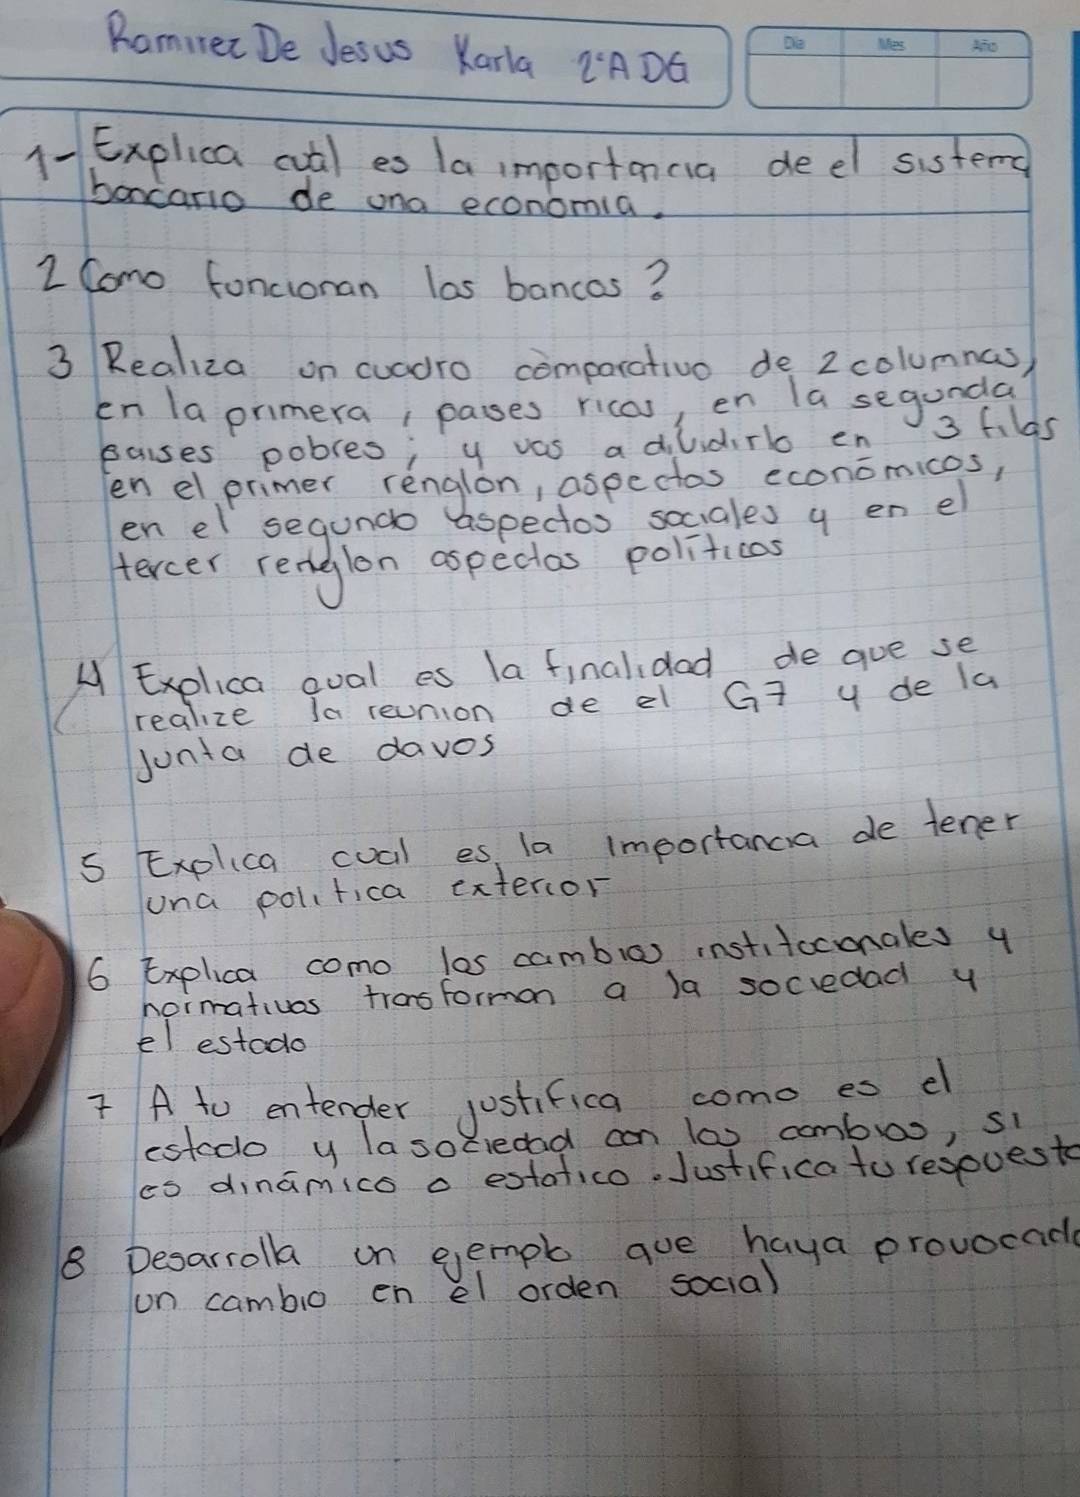 Ramirez De Jesus Karla 2°A DG
Día Mes Año
1- Explica cuál es la importancia de el sistema
bancario de una economia.
2 Como funcionan los bancos?
3 Realiza un cuadro comparativo de 2 columnas,
en la primera, paises ricos, en la segunda
paises pobres; y vas a dividirlo en 3 filas
en el primer renglon, aspectos económicos,
en el segundo aspectos sociales y en el
tercer renglon aspectos políticos
4 Explica qual es la finalidad de que se
realize la reunion de el G7 y de la
junta de davos
5 Explica cual es la importancia de tener
una politica exterior
6 Explica como los cambios institucionales y
normativos transforman a la sociedad y
el estado
7 A tu entender justifica como es el
estado y la sociedad con los cambios, si
es dinámico o estatico. Justifica tu respuesta
8 Desarrolla un ejemplo que haya provocado
un cambio en el orden social